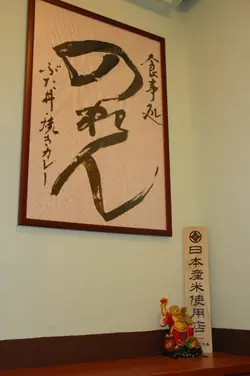 食事処
のれん
ぶた丼・焼きカレー
日本産米使用店